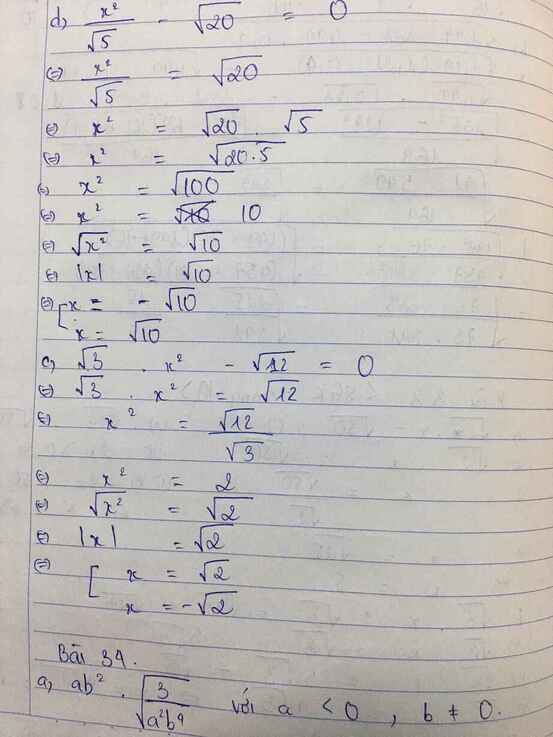 d) x²/√5 - √20 = 0
(=) x²/√5 = √20
(=) x² = √20 . √5
(=) x² = √20.5
(=) x² = √100
(=) x² = 10
(=) √x² = √10
(=) |x| = √10
(=) [ x = - √10
x = √10
c, √3 . x² - √12 = 0
(=) √3 . x² = √12
(=) x² = √12/√3
(=) x² = 2
(=) √x² = √2
(=) |x| = √2
(=) [ x = √2
x = -√2
Bài 34.
a, ab² . √3/a²b⁴ với a < 0 , b ≠ 0.